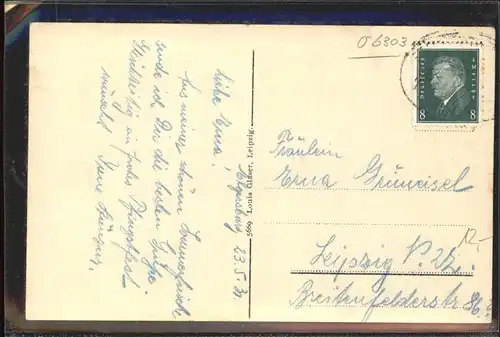 06803
Elgersburg 23.5.31.
Liebe Erna!
Aus meiner schönen Sommerfrische
sende ich Dir die besten Grüße.
Gleichzeitig ein frohes Pfingstfest
wünscht Deine
5669 Louis Glaser, Leipzig.
Deutsches Reich
8 8
Fräulein
Erna Grüneisel
Leipzig N. 22.
Breitenfelderstr. 86.
12,-